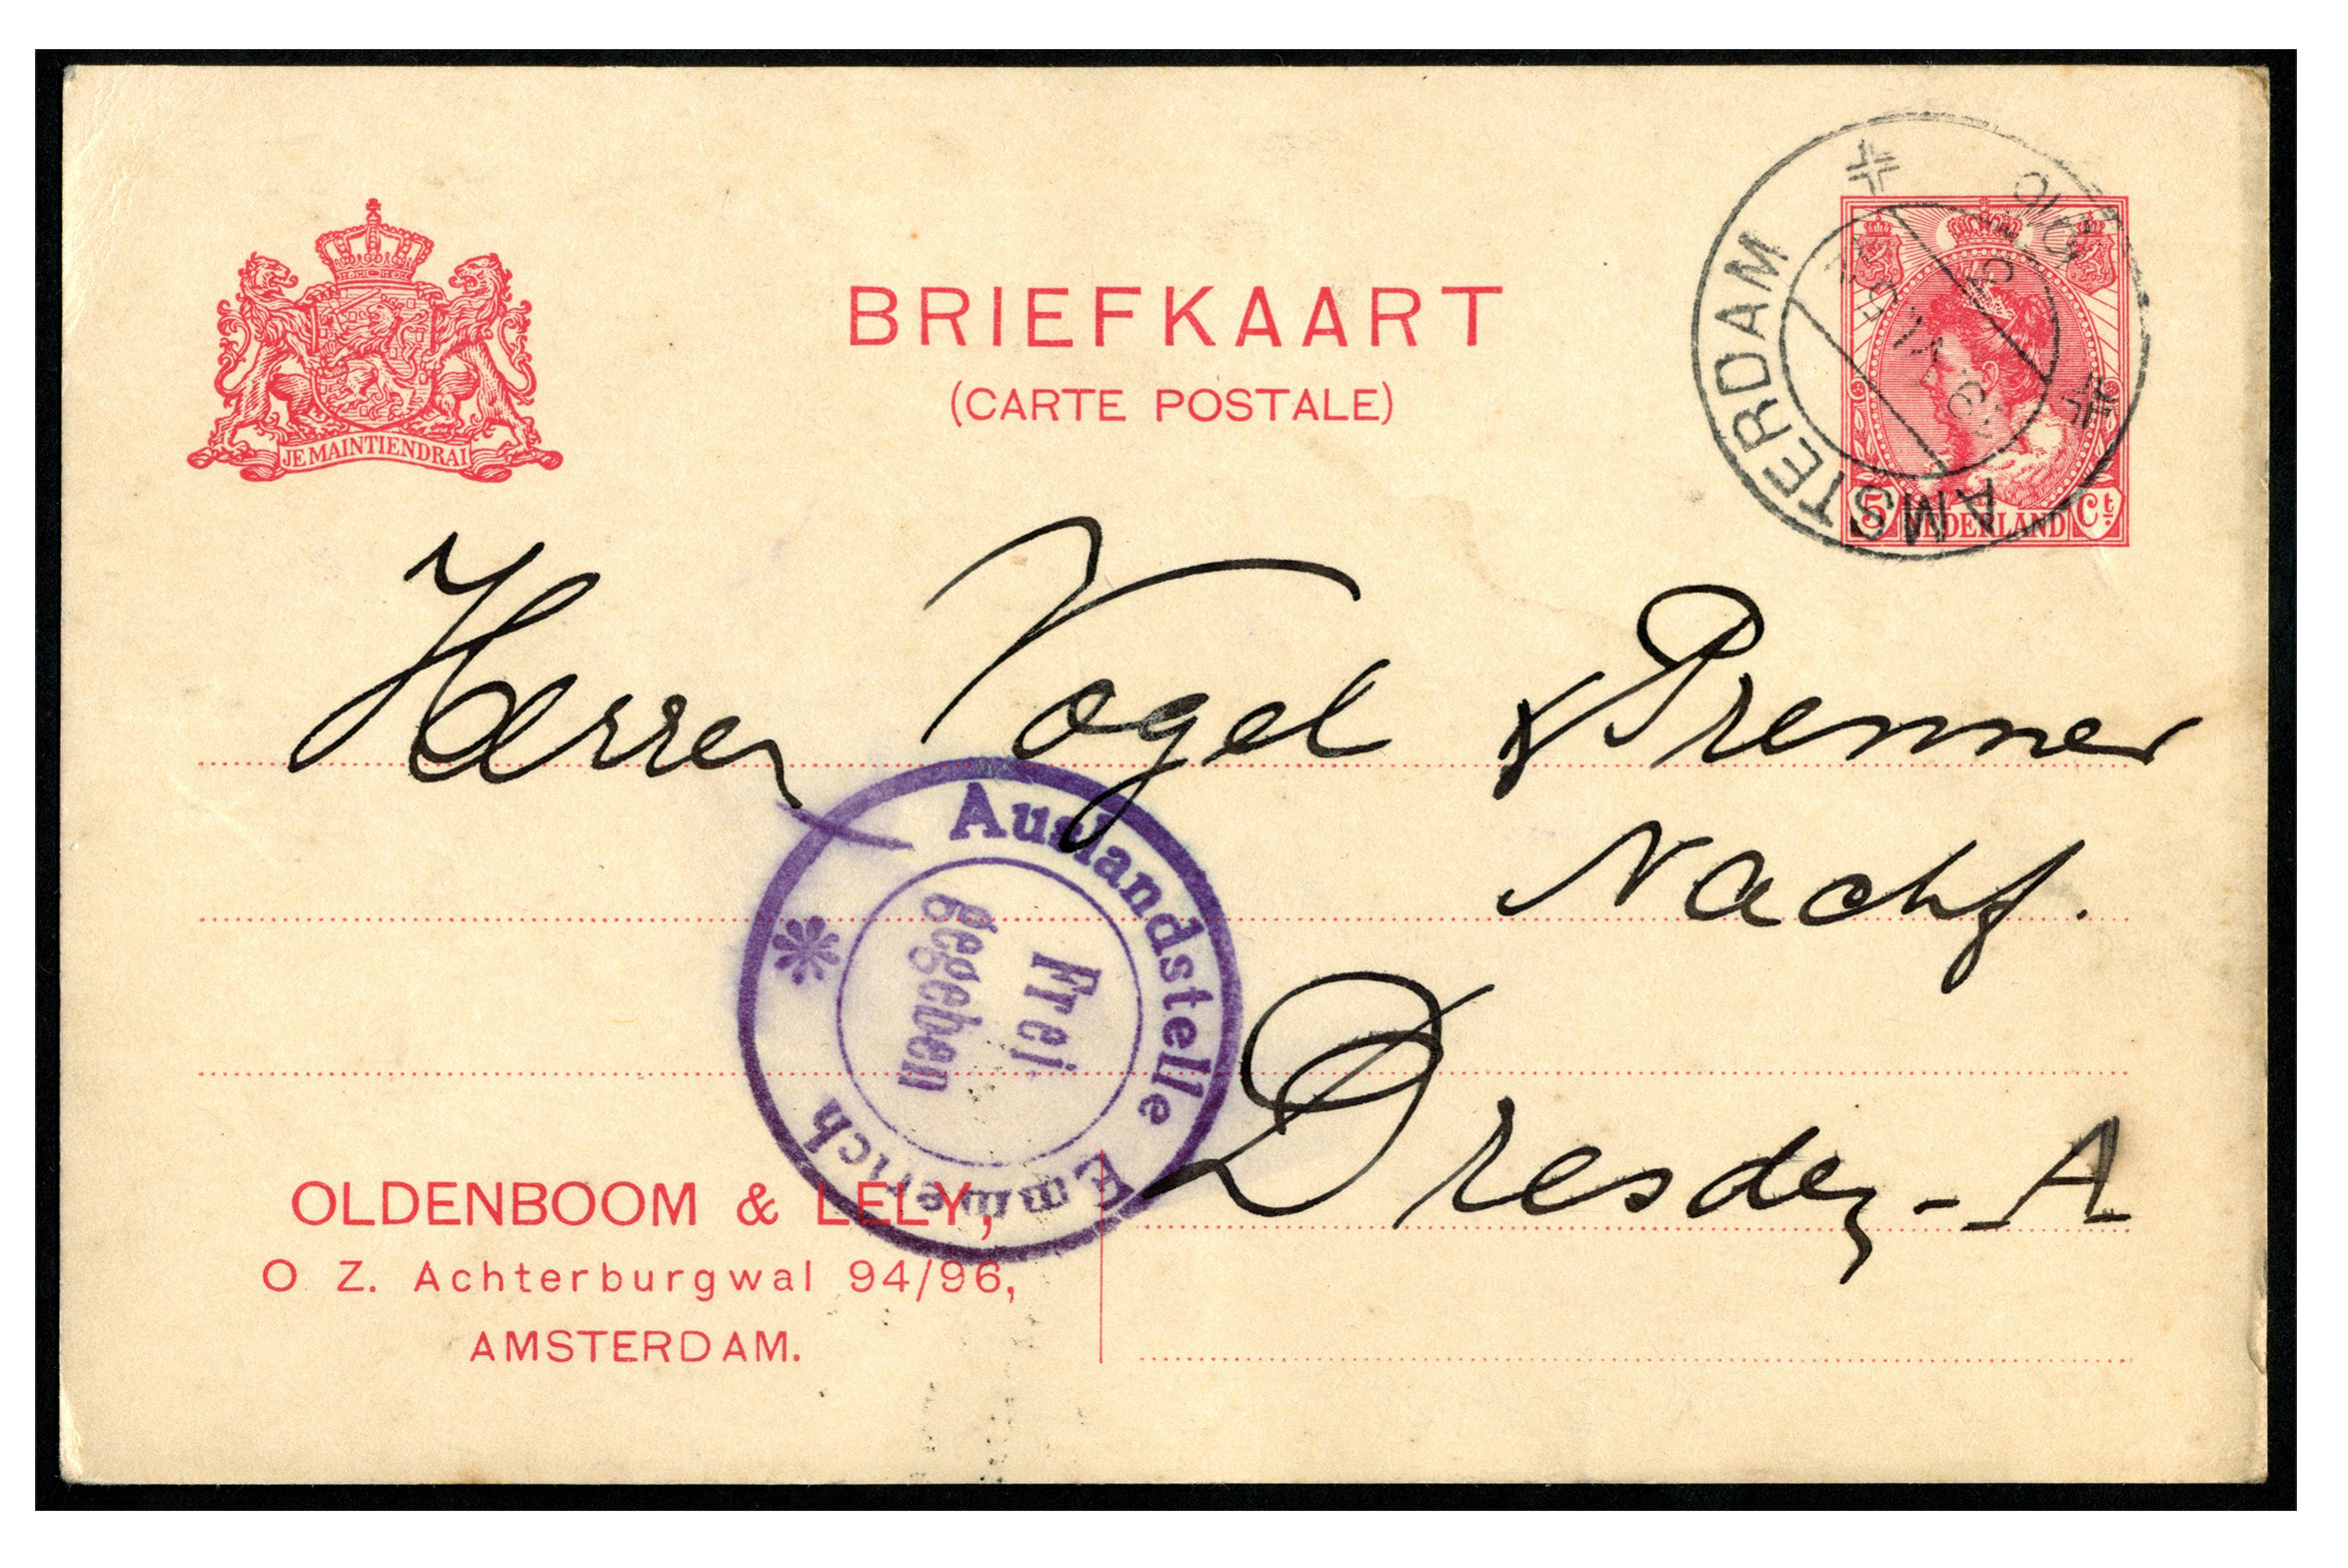 BRIEFKAART
(CARTE POSTALE)
JE MAINTIENDRAI
AMSTERDAM
5 NEDERLAND Ct.
Herren Vogel & Prenner
Nachf.
Dresden-A
Auslandstelle Emmerich
Frei
gegeben
OLDENBOOM & LELY,
O Z. Achterburgwal 94/96,
AMSTERDAM.